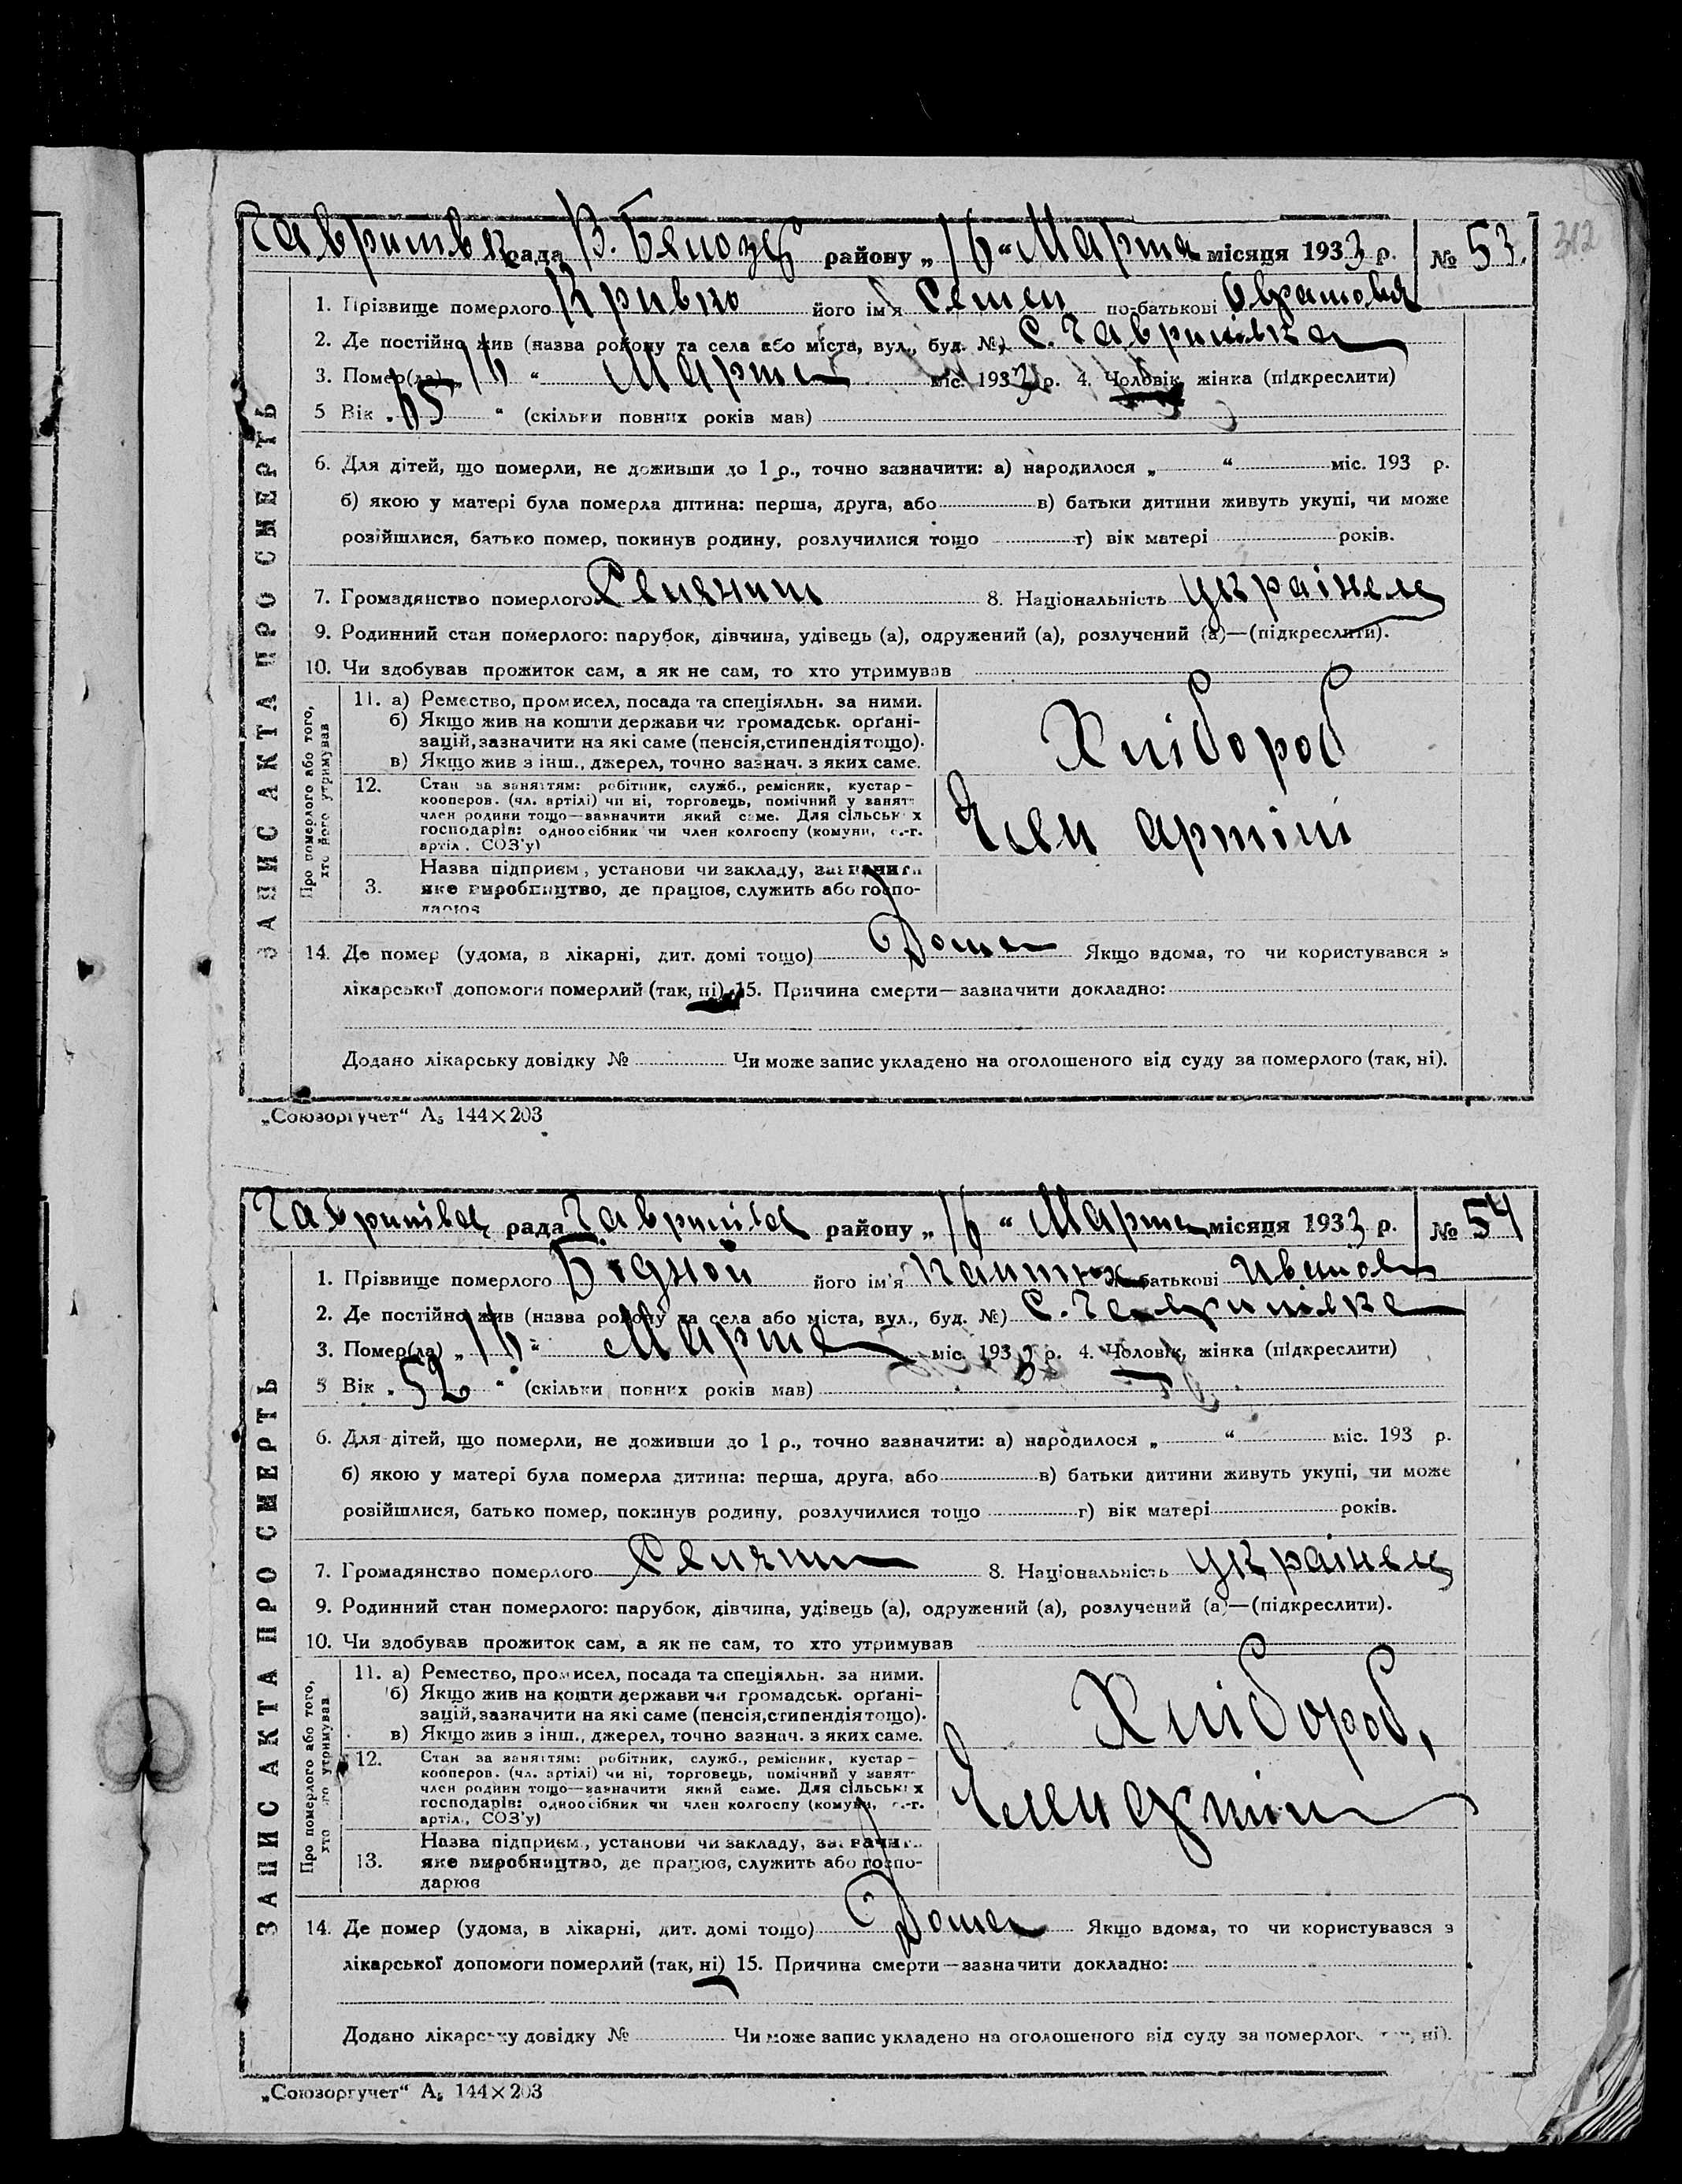 312
Гаврилівка рада В. Білозер району „16“ Марта місяця 1933 р. № 53.
ЗАПИС АКТА ПРО СМЕРТЬ
1. Прізвище померлого Кривко його ім'я Семен по-батькові
2. Де постійно жив (назва району та села або міста, вул., буд. №) С. Гаврилівка
3. Помер(ла) „16“ Марта міс. 1933 р. 4. Чоловік, жінка (підкреслити)
5 Вік „65“ (скільки повних років мав)
6. Для дітей, що померли, не доживши до 1 р., точно зазначити: а) народилося „ “ міс. 193 р.
б) якою у матері була померла дитина: перша, друга, або в) батьки дитини живуть укупі, чи може
розійшлися, батько помер, покинув родину, розлучилися тощо г) вік матері років.
7. Громадянство померлого Селянин 8. Національність українец
9. Родинний стан померлого: парубок, дівчина, удівець (а), одружений (а), розлучений (а)—(підкреслити).
10. Чи здобував прожиток сам, а як не сам, то хто утримував
Про померлого або того, хто його утримував
11. а) Ремество, промисел, посада та спеціяльн. за ними.
б) Якщо жив на кошти держави чи громадськ. орґані-
зацій, зазначити на які саме (пенсія, стипендія тощо).
в) Якщо жив з інш., джерел, точно зазнач. з яких саме.
Хлібороб
12. Стан за заняттям: робітник, служб., ремісник, кустар-
кооперов. (чл. артілі) чи ні, торговець, помічний у занятт
член родини тощо—зазначити який саме. Для сільськ х
господарів: одноосібник чи член колгоспу (комуни, с.-г.
артіл., СОЗ'у)
Член артілі
Назва підприєм., установи чи закладу, зазначити
3. яке виробництво, де працює, служить або госпо-
дарює
14. Де помер (удома, в лікарні, дит. домі тощо) Дома Якщо вдома, то чи користувався з
лікарської допомоги померлий (так, ні) 15. Причина смерти—зазначити докладно:
Додано лікарську довідку № Чи може запис укладено на оголошеного від суду за померлого (так, ні).
„Союзоргучет“ А₅ 144×203
Гаврилівка рада Гаврилівка району „16“ Марта місяця 1933 р. № 54
ЗАПИС АКТА ПРО СМЕРТЬ
1. Прізвище померлого Бідной його ім'я по-батькові Иванов
2. Де постійно жив (назва району та села або міста, вул., буд. №) С. Гаврилівка
3. Помер(ла) „16“ Марта міс. 1933 р. 4. Чоловік, жінка (підкреслити)
5 Вік „52“ (скільки повних років мав)
6. Для дітей, що померли, не доживши до 1 р., точно зазначити: а) народилося „ “ міс. 193 р.
б) якою у матері була померла дитина: перша, друга, або в) батьки дитини живуть укупі, чи може
розійшлися, батько помер, покинув родину, розлучилися тощо г) вік матері років.
7. Громадянство померлого Селянин 8. Національність українец
9. Родинний стан померлого: парубок, дівчина, удівець (а), одружений (а), розлучений (а)—(підкреслити).
10. Чи здобував прожиток сам, а як не сам, то хто утримував
Про померлого або того, хто його утримував
11. а) Ремество, промисел, посада та спеціяльн. за ними.
б) Якщо жив на кошти держави чи громадськ. орґані-
зацій, зазначити на які саме (пенсія, стипендія тощо).
в) Якщо жив з інш., джерел, точно зазнач. з яких саме.
Хлібороб,
12. Стан за заняттям: робітник, служб., ремісник, кустар-
кооперов. (чл. артілі) чи ні, торговець, помічний у занят
член родини тощо—зазначити який саме. Для сільськ х
господарів: одноосібник чи член колгоспу (комуни, с.-г.
артіл., СОЗ'у)
Член артіли
Назва підприєм., установи чи закладу, зазначити
13. яке виробництво, де працює, служить або госпо-
дарює
14. Де помер (удома, в лікарні, дит. домі тощо) Дома Якщо вдома, то чи користувався з
лікарської допомоги померлий (так, ні) 15. Причина смерти—зазначити докладно:
Додано лікарську довідку № Чи може запис укладено на оголошеного від суду за померлого (так, ні).
„Союзоргучет“ А₅ 144×203